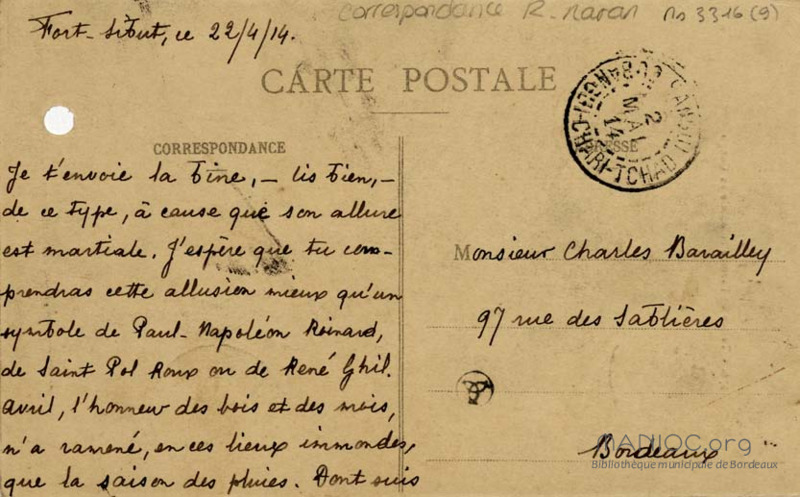 correspondance R. Maran Ms 3316 (9)
Fort-Sibut, ce 22/4/14.
CARTE POSTALE
BANGUI
2
MAI
14
CHARI-TCHAD
CORRESPONDANCE
Je t'envoie la bine, — lis bien, —
de ce type, à cause que son allure
est martiale. J'espère que tu com-
prendras cette allusion mieux qu'un
symbole de Paul-Napoléon Roinard,
de Saint Pol Roux ou de René Ghil.
Avril, l'honneur des bois et des mois,
n'a ramené, en ces lieux immondes,
que la saison des pluies. Dont suis
Monsieur Charles Barailley
97 rue des Sablières
Bordeaux
MANIOC.org
Bibliothèque municipale de Bordeaux